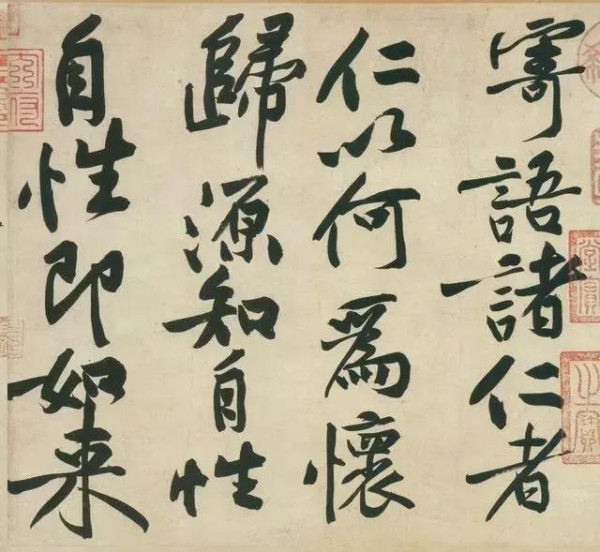 寄語諸仁者
仁以何爲懷
歸源知自性
自性即如来